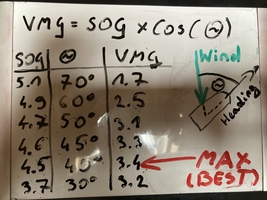 VMG = SOG x COS(Θ)
SOG Θ VMG
Wind
Θ
Heading
5.1 70° 1.7
4.9 60° 2.5
4.7 50° 3.1
4.6 45° 3.3
4.5 40° 3.4 ← MAX
3.7 30° 3.2 (BEST)